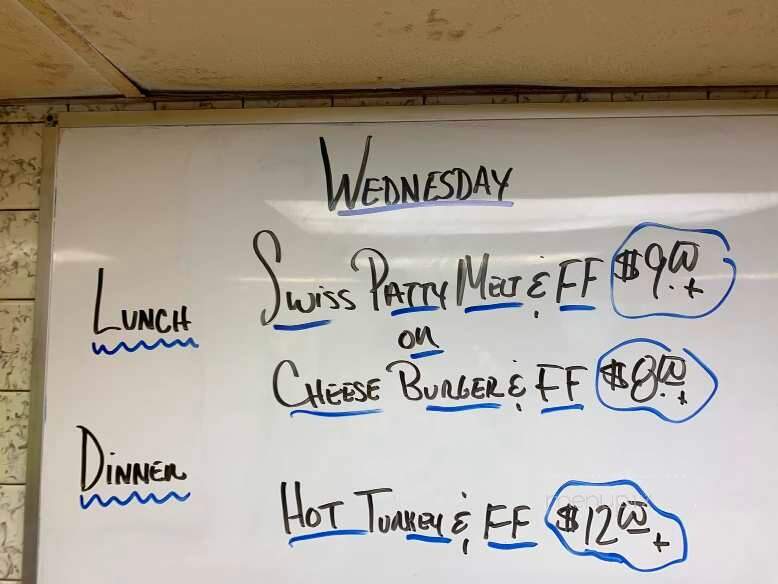 WEDNESDAY
LUNCH
SWISS PATTY MELT & FF $9.00 +
OR
CHEESE BURGER & FF $8.00 +
DINNER
HOT TURKEY & FF $12.00 +